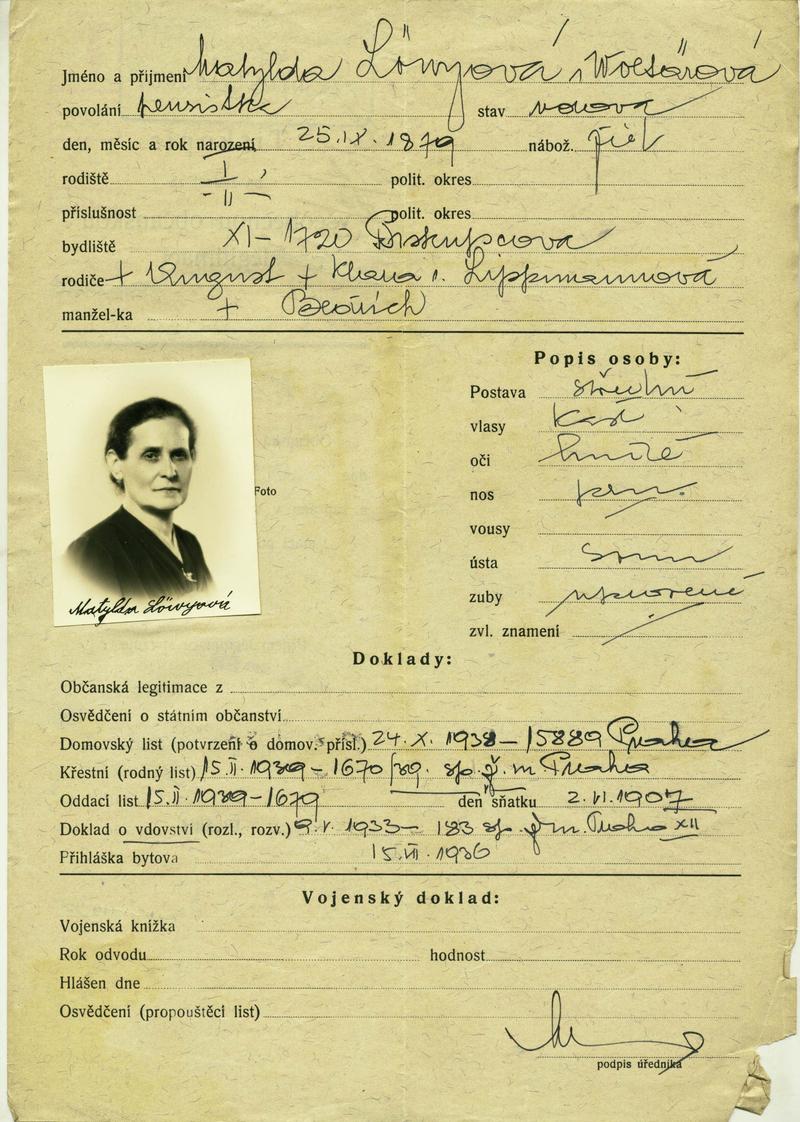 Jméno a příjmení Matylda Löwyová r. Woltärová
povolání pensistka stav vdova
den, měsíc a rok narození 25.IX.1879 nábož.
rodiště I polit. okres
příslušnost -II- polit. okres
bydliště XI-1720 Biskupcova
rodiče + August + Khana r. Lippmannová
manžel-ka + Bedřich
Popis osoby:
Postava střední
vlasy kašt
oči hnědé
Foto
nos
vousy
ústa soum
zuby
zvl. znamení
Matylda Löwyová
Doklady:
Občanská legitimace z
Osvědčení o státním občanství
Domovský list (potvrzení o domov. přísl.) 24.X.1938-15889 Praha
Křestní (rodný list) 15.II.1939-1670/39. sp. ž. m. Praha
Oddací list 15.II.1939-1679 deň sňatku 2.VI.1907
Doklad o vdovství (rozl., rozv.) 9.V.1933- 183 sp. ž m. Praha XII
Přihláška bytova 15.VII.1936
Vojenský doklad:
Vojenská knížka
Rok odvodu hodnost
Hlášen dne
Osvědčení (propouštěcí list)
podpis úředníka